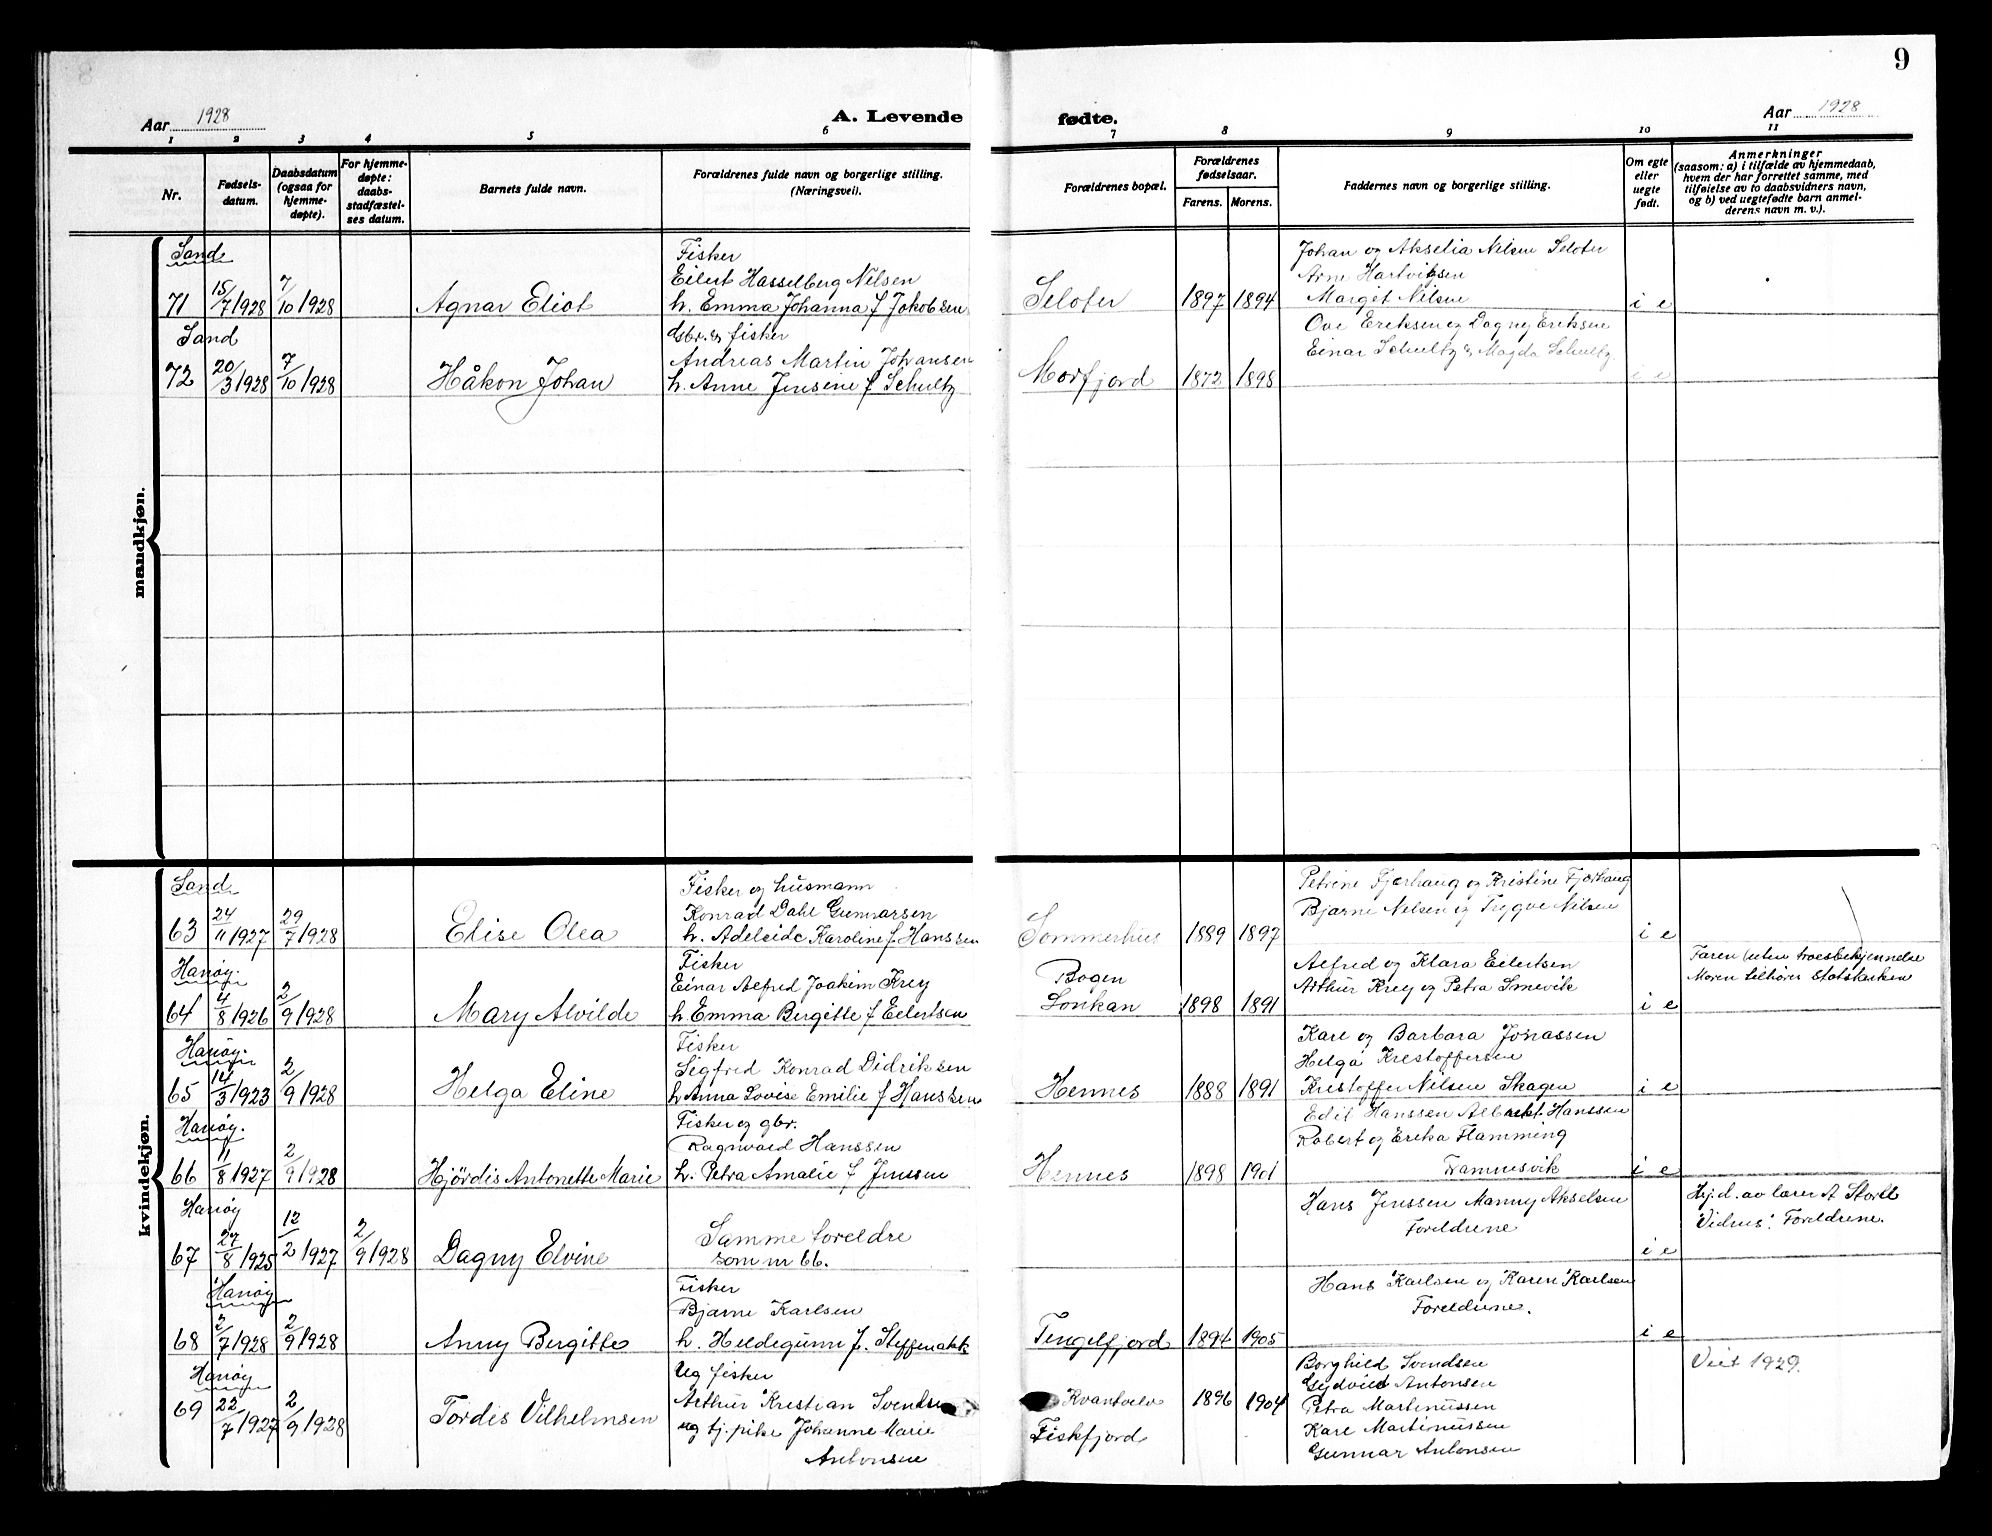 9
Aar 1928
A. Levende
fødte.
Aar 1928
1 2 3 4 5 6 7 8 9 10 11
Nr.
Fødsels-
datum.
Daabsdatum
(ogsaa for
hjemme-
døpte).
For hjemme-
døpte:
daabs-
stadfæstel-
ses datum.
Barnets fulde navn.
Forældrenes fulde navn og borgerlige stilling.
(Næringsvei).
Forældrenes bopæl.
Forældrenes
fødselsaar.
Farens. Morens.
Faddernes navn og borgerlige stilling.
Om egte
eller
uegte
født.
Anmerkninger
(saasom: a) i tilfælde av hjemmedaab,
hvem der har forrettet samme, med
tilføielse av to daabsvidners navn,
og b) ved uegtefødte barn anmel-
derens navn m. v.).
mandkjøn.
Sand
71 15/7 1928 7/10 1928 Agnar Eliot
Fisker
Eilert Hasselberg Nilsen
h. Emma Johanna f Jakobsen
Selofer 1897 1894
Johan og Akselia Nilsen Selofer
Arne Hartvigsen
Margit Nilsen
i e
Sand
72 20/3 1928 7/10 1928 Håkon Johan
Gbr. & fisker
Andreas Martin Johansen
h. Anne Jensine f Schultz
Morfjord 1872 1898
Ove Eriksen og Dagny Eriksen
Einar Schultz & Magda Schultz
i e
kvindekjøn.
Sand
63 24/11 1927 29/7 1928 Elise Olea
Fisker og husmann
Konrad Dahl Gunnarsen
h. Adeleide Karoline f. Hanssen
Sommerhus 1889 1897
Petrine Fjærhaug og Kristine Fjærhaug
Bjarne Nilsen og Trygve Nilsen
i e
Hanøy.
64 4/8 1926 2/9 1928 Mary Alvilde
Fisker
Einar Alfred Joakim Krey
h. Emma Birgitte f Eilertsen
Bogen
Lonkan 1898 1891
Alfred og Klara Eilertsen
Arthur Krey og Petra Smevik
i e
Faren uten troesbekjennelse
Moren tilhører statskirken
Hanøy.
65 14/3 1923 2/9 1928 Helga Eline
Fisker
Sigfred Konrad Didriksen
h Anna Lovise Emilie f Hanssen
Hennes 1888 1891
Kare og Barbara Jonassen
Helga Kristoffersen
Kristoffer Nilsen Skagen
i e
Hanøy.
66 11/8 1927 2/9 1928 Hjördis Antonette Marie
Fisker og gbr.
Ragnvald Hanssen
h. Petra Amalie f Jenssen
Hennes 1898 1901
Edit Hanssen Albrekt. Hanssen
Robert og Erika Flamming
Framnesvik
i e
Hanøy
67 27/8 1925 12/2 1927 2/9 1928 Dagny Elvine
Samme foreldre
som nr 66.
Hans Jenssen Manny Akselsen
Foreldrene
i e
Hj.d. av lærer A Stoll
Vidns: Foreldrene.
Hanøy
68 2/7 1928 2/9 1928 Anny Birgitte
Fisker
Bjarne Karlsen
h. Hildegunn f.
Tengelfjord 1894 1905
Hans Karlsen og Karen Karlsen
Foreldrene.
i e
Hanøy
69 22/7 1927 2/9 1928 Tordis Vilhelmsen
Ug fisker
Arthur Kristian Svendsen
ug tj. pike Johanne Marie
Antonsen
1896 1904
Fiskfjord
Borghild Svendsen
Gydvied Antonsen
Petra Martinussen
Kare Martinussen
Gunnar Antonsen
Viet 1929.